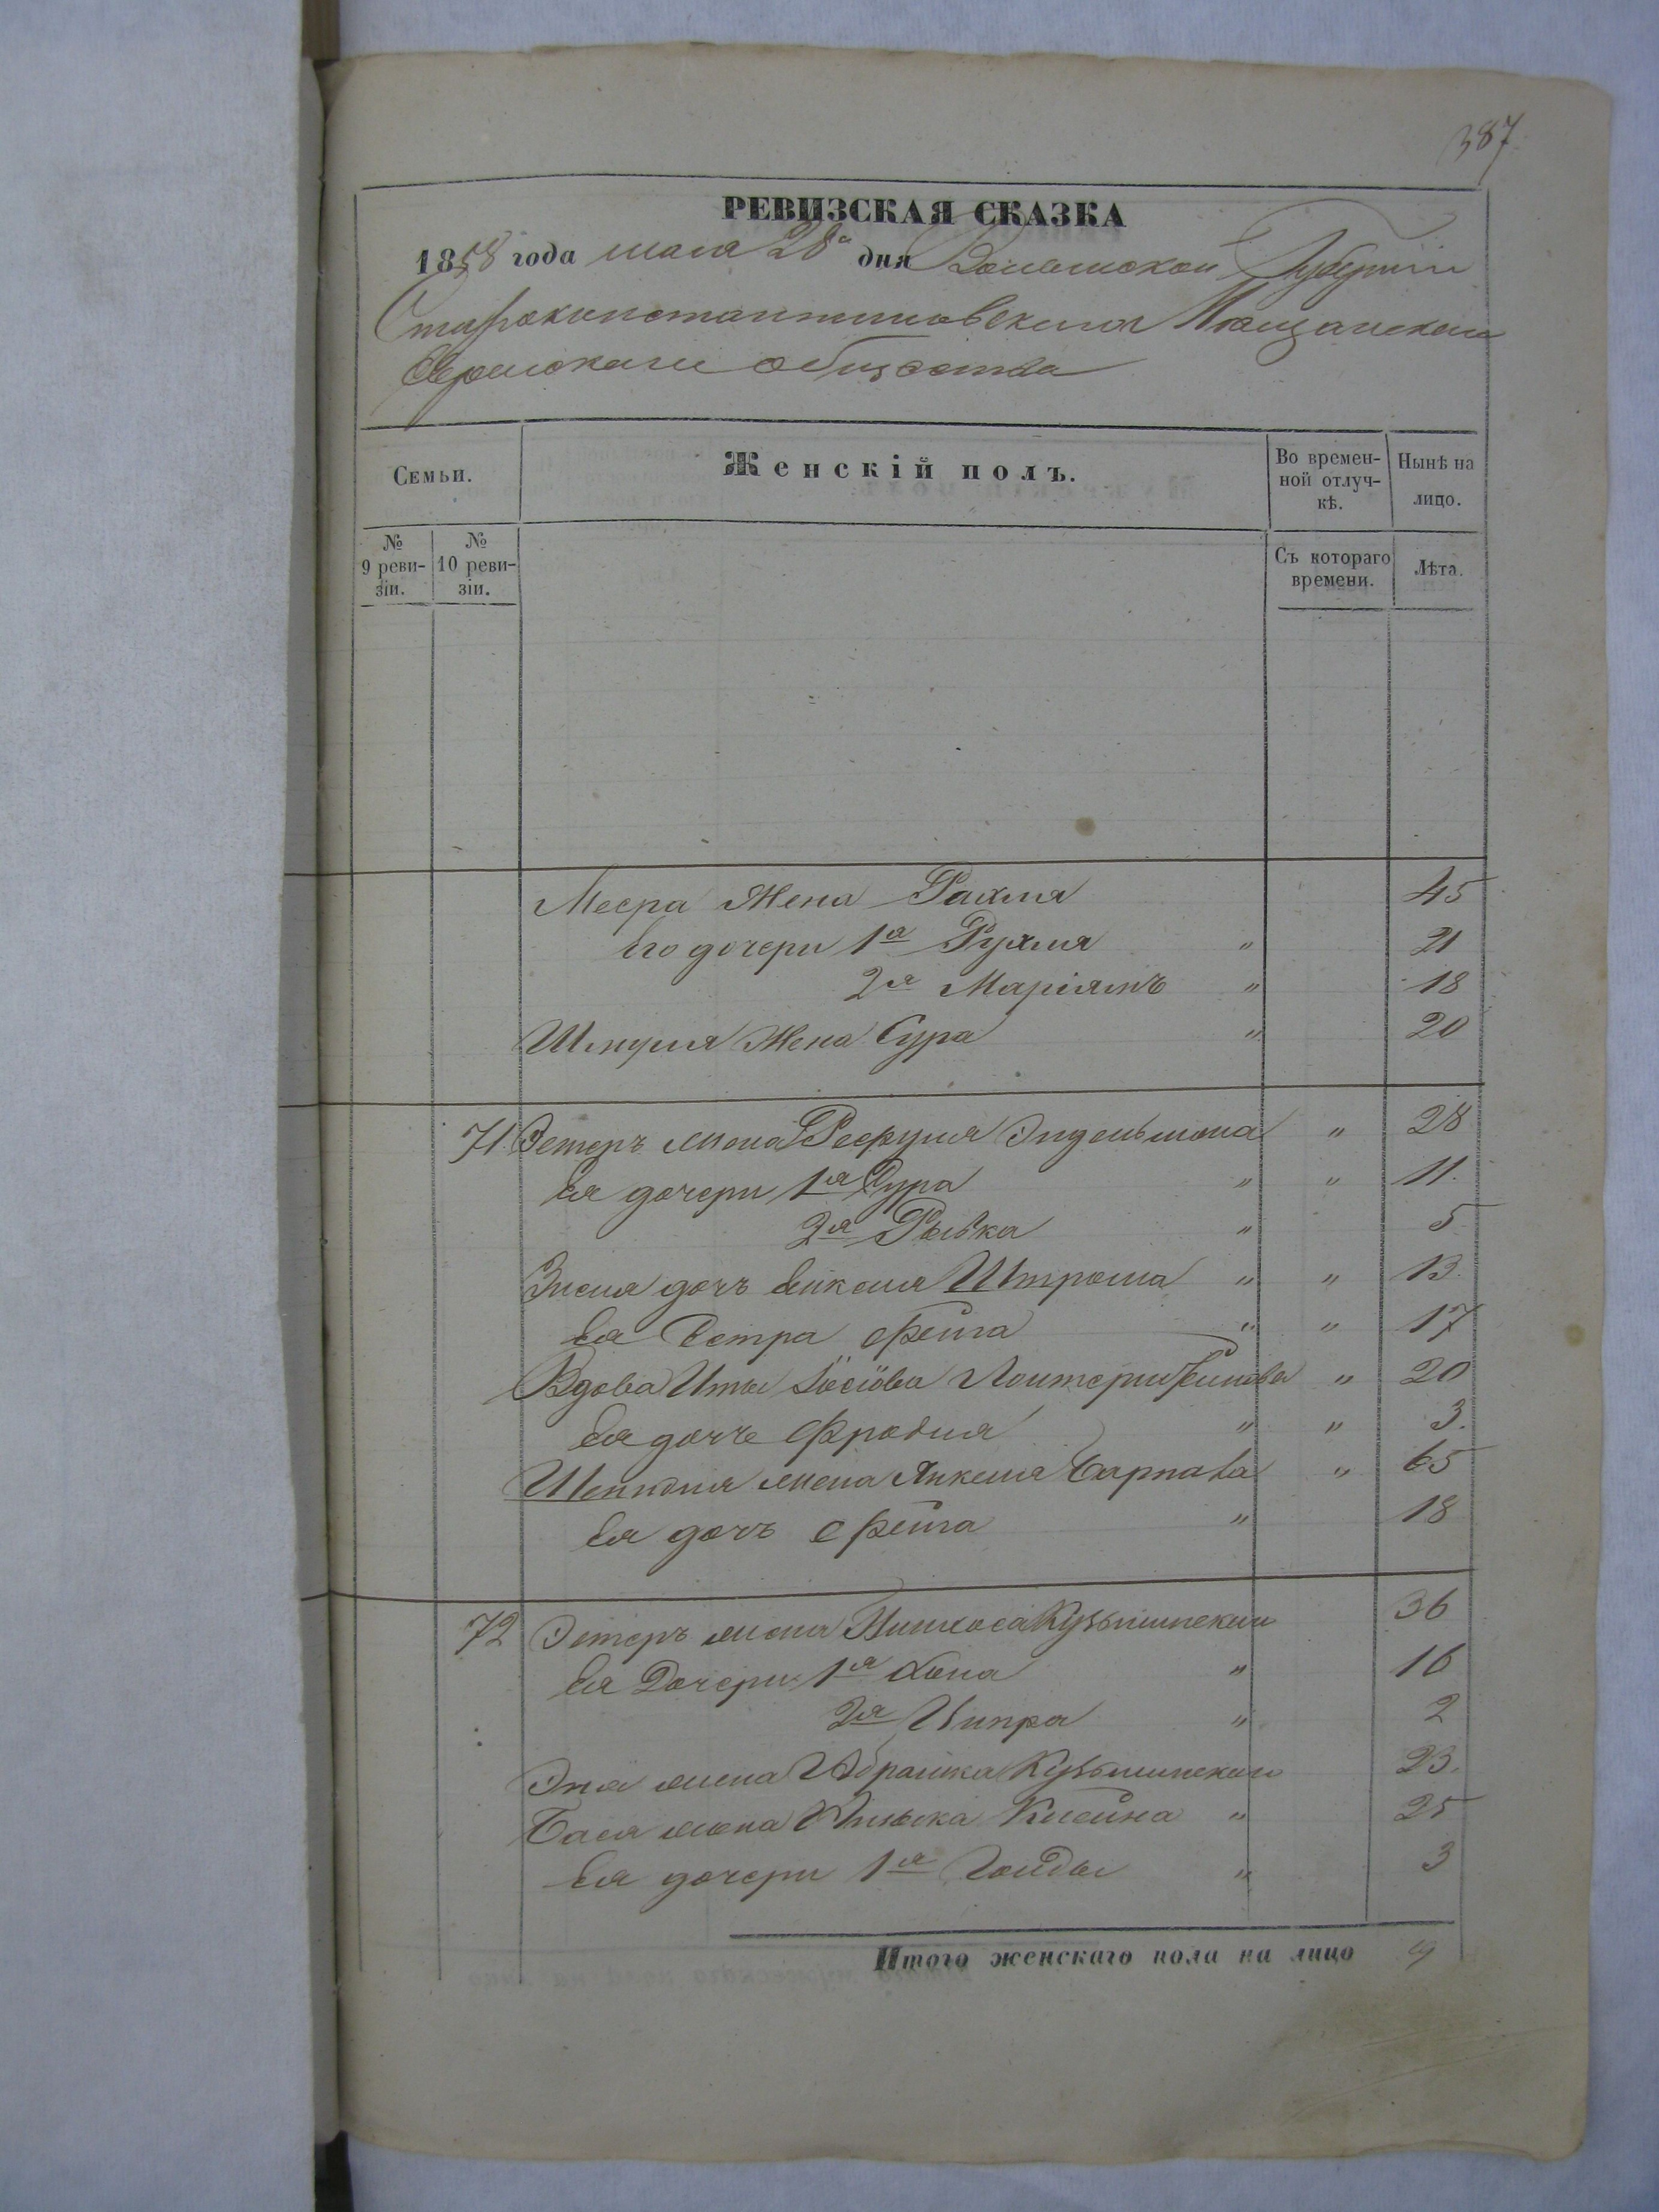 387
РЕВИЗСКАЯ СКАЗКА
1858 года мая 28 дня Волынской Губернии
Староконстантиновскаго Мещанскаго
Еврейскаго общества
Семьи.
Женскій полъ.
Во времен-
ной отлуч-
кѣ.
Нынѣ на
лицо.
№
9 реви-
зіи.
№
10 реви-
зіи.
Съ котораго
времени.
Лѣта.
Меера Жена Рахля 45
Его дочери 1я Рухля " 21
2я Маріямъ " 18
Шмуля Жена Сура " 20
71 Эстеръ жена " 28
Ея дочери 1я Сура " " 11
2я Рывка " 5
дочь Янкеля " " 13
Ея Сестра Фейга " " 17
Вдова Иты " 20
Ея дочь Фродля " " 3
жена Янкеля " 65
Ея дочь Фейга " 18
72 Эстеръ жена Пинкоса Кузьминскаго 36
Ея Дочери 1я Хана " 16
2я Ципра " 2
жена Абрамка Кузьминскаго 23
Бася жена Клейна " 25
Ея дочери 1я Гольды " 3
Итого женскаго пола на лицо 19